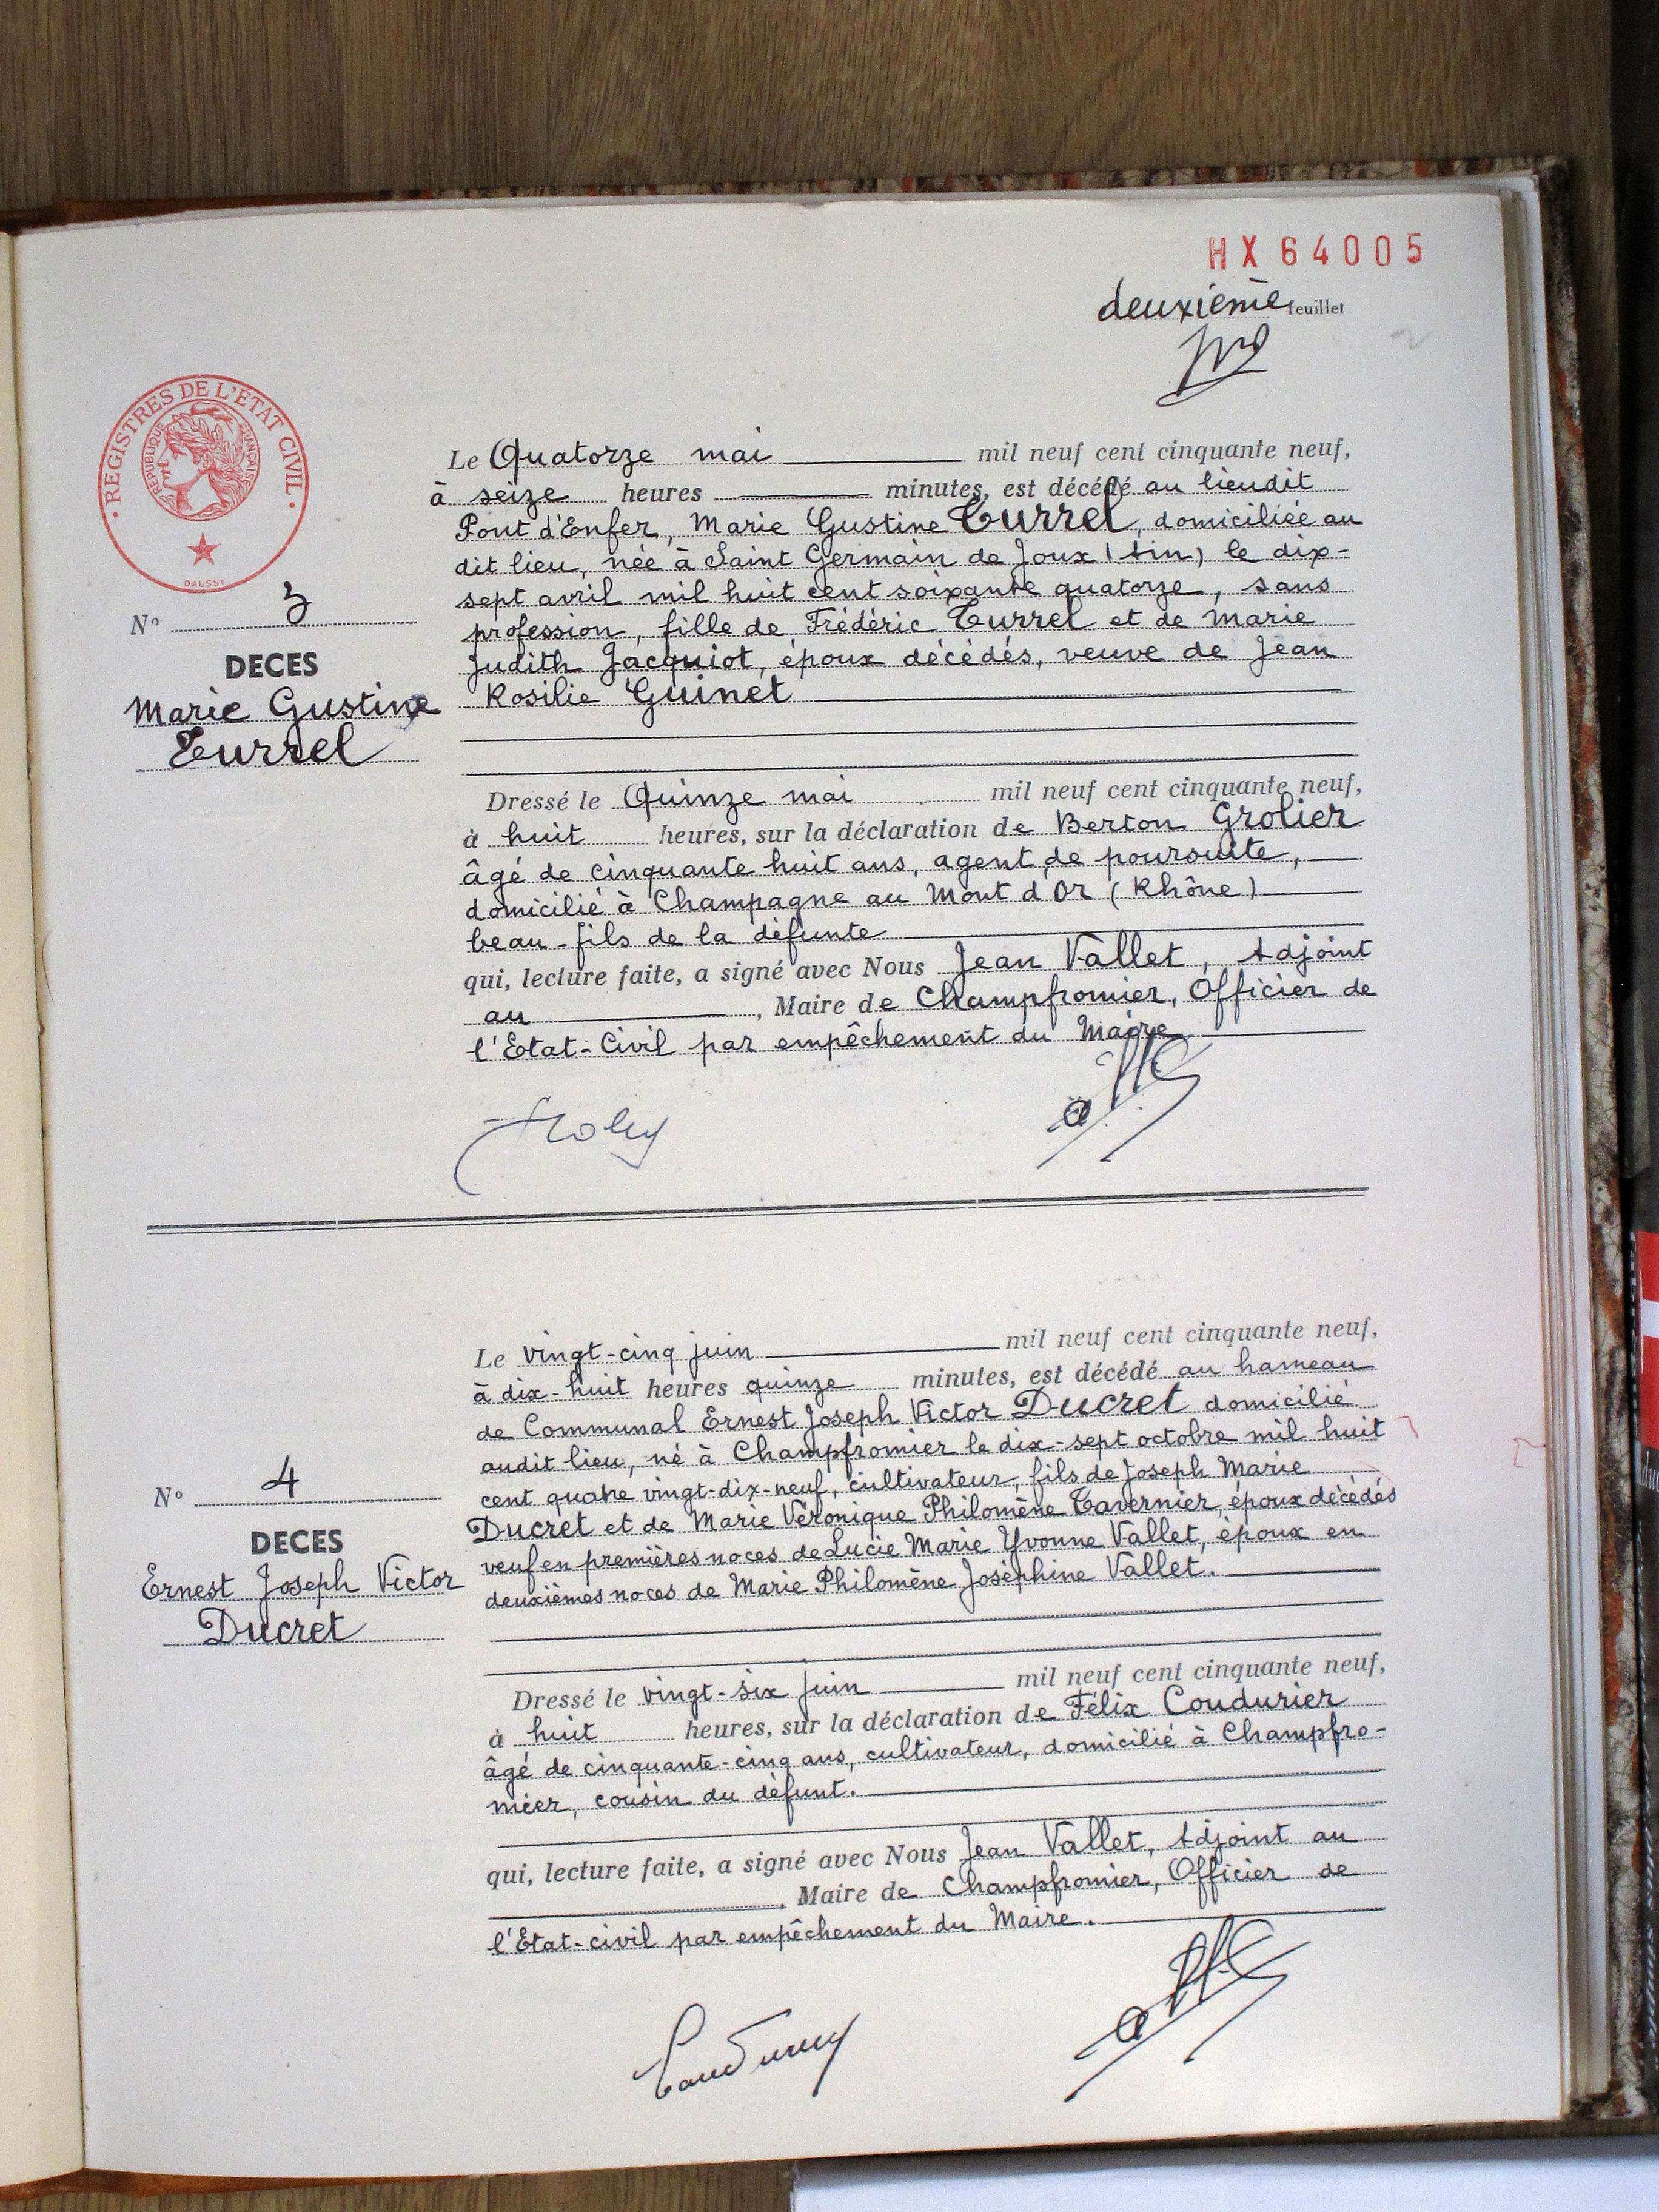 HX 64005
deuxième feuillet
REGISTRES DE L'ÉTAT CIVIL
RÉPUBLIQUE FRANÇAISE
DAUSSY
N° 3
DECES
Marie Gustine
Turrel
Le Quatorze mai mil neuf cent cinquante neuf,
à seize heures minutes, est décédé au lieudit
Pont d'Enfer, Marie Gustine Turrel, domiciliée au
dit lieu, née à Saint Germain de Joux (Ain) le dix-
sept avril mil huit cent soixante quatorze, sans
profession, fille de Frédéric Turrel et de Marie
Judith Jacquiot, époux décédés, veuve de Jean
Rosilie Guinet
Dressé le Quinze mai mil neuf cent cinquante neuf,
à huit heures, sur la déclaration de Berton Grolier
âgé de cinquante huit ans, agent de poursuite,
domicilié à Champagne au Mont d'Or (Rhône)
beau-fils de la défunte
qui, lecture faite, a signé avec Nous Jean Vallet, Adjoint
au , Maire de Champfromier, Officier de
l'Etat-Civil par empêchement du Maire
N° 4
DECES
Ernest Joseph Victor
Ducret
Le vingt-cinq juin mil neuf cent cinquante neuf,
à dix-huit heures quinze minutes, est décédé au hameau
de Communal Ernest Joseph Victor Ducret domicilié
audit lieu, né à Champfromier le dix-sept octobre mil huit
cent quatre vingt-dix-neuf, cultivateur, fils de Joseph Marie
Ducret et de Marie Véronique Philomène Tavernier, époux décédés
veuf en premières noces de Lucie Marie Yvonne Vallet, époux en
deuxièmes noces de Marie Philomène Joséphine Vallet.
Dressé le vingt-six juin mil neuf cent cinquante neuf,
à huit heures, sur la déclaration de Félix Coudurier
âgé de cinquante-cinq ans, cultivateur, domicilié à Champfro-
mier, cousin du défunt.
qui, lecture faite, a signé avec Nous Jean Vallet, Adjoint au
, Maire de Champfromier, Officier de
l'Etat-civil par empêchement du Maire.